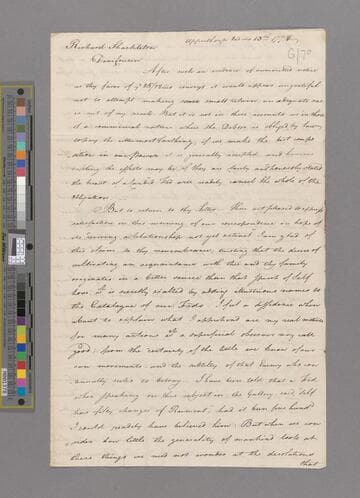 Richard Shackleton
Dear friend
After such an instance of unmerited notice
as thy favor of ye 25/ conveys it would appear ungrateful
not to attempt making some small return, an adequate one
is out of my reach. But it is not in these accounts as in those
of a commercial nature where the Debtor is obliged by Law
to pay the uttermost farthing; if we make the best compo
sition in our Power it is generally accepted and however
trifling the efforts may be if they are fairly and honestly stated
the heart of a fri will easily cancel the whole of the
obligation
But to return to thy letter. Thou art pleased to express
satisfaction in this renewing of our correspondence in hope of
its reviving a relationship not yet extinct I am glad of
this claim to thy remembrance, trusting that the desire of
cultivating an acquaintance with thee and thy family
originates in a better source than that Spirit of Self
love. is secretly exalted by adding illustrious names to
the Catalogue of our frds. I feel a diffidence when
about to explain what I apprehend are my real motives
for many actions wch to a superficial observer may look
good; from the certainty of the little we know of our
own movements and the subtilty of that Enemy who con
tinually seeks to betray. I have been told that a frd
when speaking on this subject in the Gallery said Self
had fifty changes of Raiment, had it been five hundd
I could readily have believed him: But when we con
sider how little the generality of mankind look at
these things we need not wonder at the desolations
that
G/70